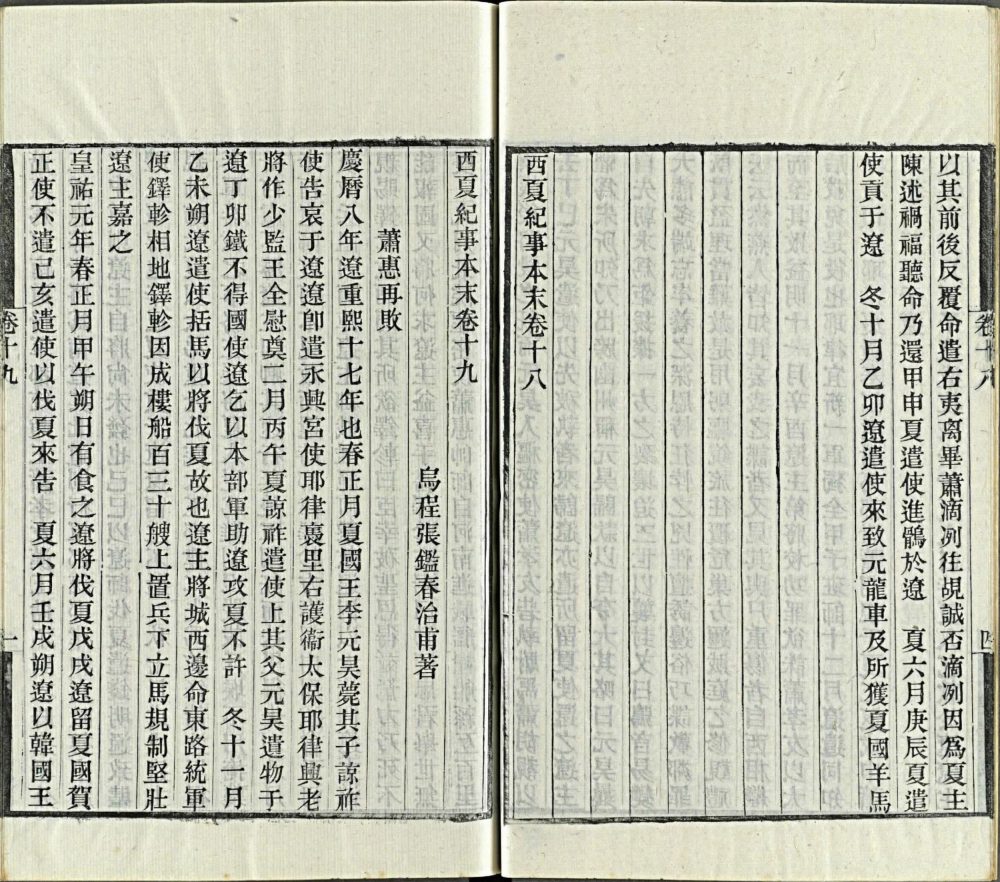 以其前後反覆命遣右夷离畢蕭滴冽往覘誠否滴冽因爲夏主
陳述禍福聽命乃還甲申夏遣使進鶻於遼　夏六月庚辰夏遣
使貢于遼　冬十月乙卯遼遣使來致元龍車及所獲夏國羊馬
西夏紀事本末卷十八
卷十八
四
西夏紀事本末卷十九
烏程張鑑春治甫著
蕭惠再敗
慶曆八年遼重熙十七年也春正月夏國王李元昊薨其子諒祚
使告哀于遼遼卽遣永興宮使耶律褭里右護衞太保耶律興老
將作少監王全慰奠二月丙午夏諒祚遣使上其父元昊遺物于
遼丁卯鐵不得國使遼乞以本部軍助遼攻夏不許　冬十一月
乙未朔遼遣使括馬以將伐夏故也遼主將城西邊命東路統軍
使鐸軫相地鐸軫因成樓船百三十艘上置兵下立馬規制堅壯
遼主嘉之
皇祐元年春正月甲午朔日有食之遼將伐夏戊戌遼留夏國賀
正使不遣己亥遣使以伐夏來告　夏六月壬戌朔遼以韓國王
卷十九
一